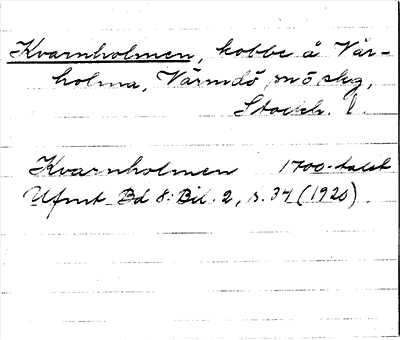 Kvarnholmen, kobbe å Vår-
holma, Värmdö skg,
Stockh. l.
Kvarnholmen 1700-talet
Ufmt Bd 8: Bil. 2, s. 34 (1920)